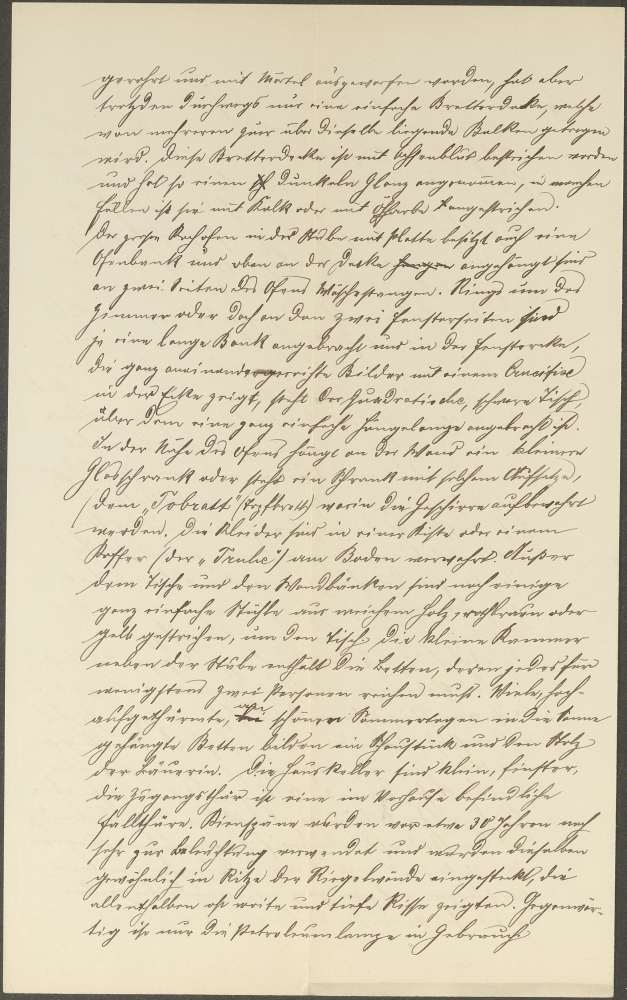 gerohrt und mit Mörtel ausgeworfen worden, hat aber
trotzdem durchwegs nur eine einfache Bretterdecke, welche
von mehreren quer über dieselbe liegende Balken getragen
wird. Diese Bretterdecke ist mit Ochsenblut bestrichen worden
und hat so einen dunkeln Glanz angenommen, in manchen
Fällen ist sie mit Kalk oder mit Ölfarbe angestrichen.
Der große Kachofen in der Stube mit Platte besitzt auch eine
Ofenbank und oben an der Decke hangen angehängt sind
an zwei Seiten des Ofens Wäschestangen. Rings um das
Zimmer oder doch an den zwei Fensterseiten sind
je eine lange Bank angebracht und in der Fensterecke,
die ganz aneinandergereihte Bilder mit einem Crucifixe
in der Ecke zeigt, steht der quadratische, schwere Tisch,
über dem eine ganz einfache Hängelampe angebracht ist.
In der Nähe des Ofens hängt an der Wand ein kleiner
Glasschrank oder steht ein Schrank mit solchem Aufsatze,
(dem „Tobratt" (Topfbrett) worin die Geschirre aufbewahrt
werden. Die Kleider sind in einer Kiste oder einem
Koffer (der „Truhe") am Boden verwahrt. Außer
dem Tische und den Wandbänken sind noch einige
ganz einfache Stühle aus weichem Holz, rothbraun oder
gelb gestrichen, um den Tisch. Die kleine Kammer
neben der Stube enthält die Betten, deren jedes für
wenigstens zwei Personen reichen muß. Viele, hoch-
aufgethürmte, an schönen Sommertagen in die Sonne
gehängte Betten bilden ein Schaustück und den Stolz
der Bäuerin. Die Hauskeller sind klein, finster,
die Zugangsthür ist eine im Vorhause befindliche
Fallthüre. Kienspäne wurden vor etwa 30 Jahren noch
sehr zur Beleuchtung verwendet und wurden dieselben
gewöhnlich in Ritze der Riegelwände eingesteckt, die
allenthalben oft weite und tiefe Risse zeigten. Gegenwär-
tig ist nur die Petroleumlampe in Gebrauch.